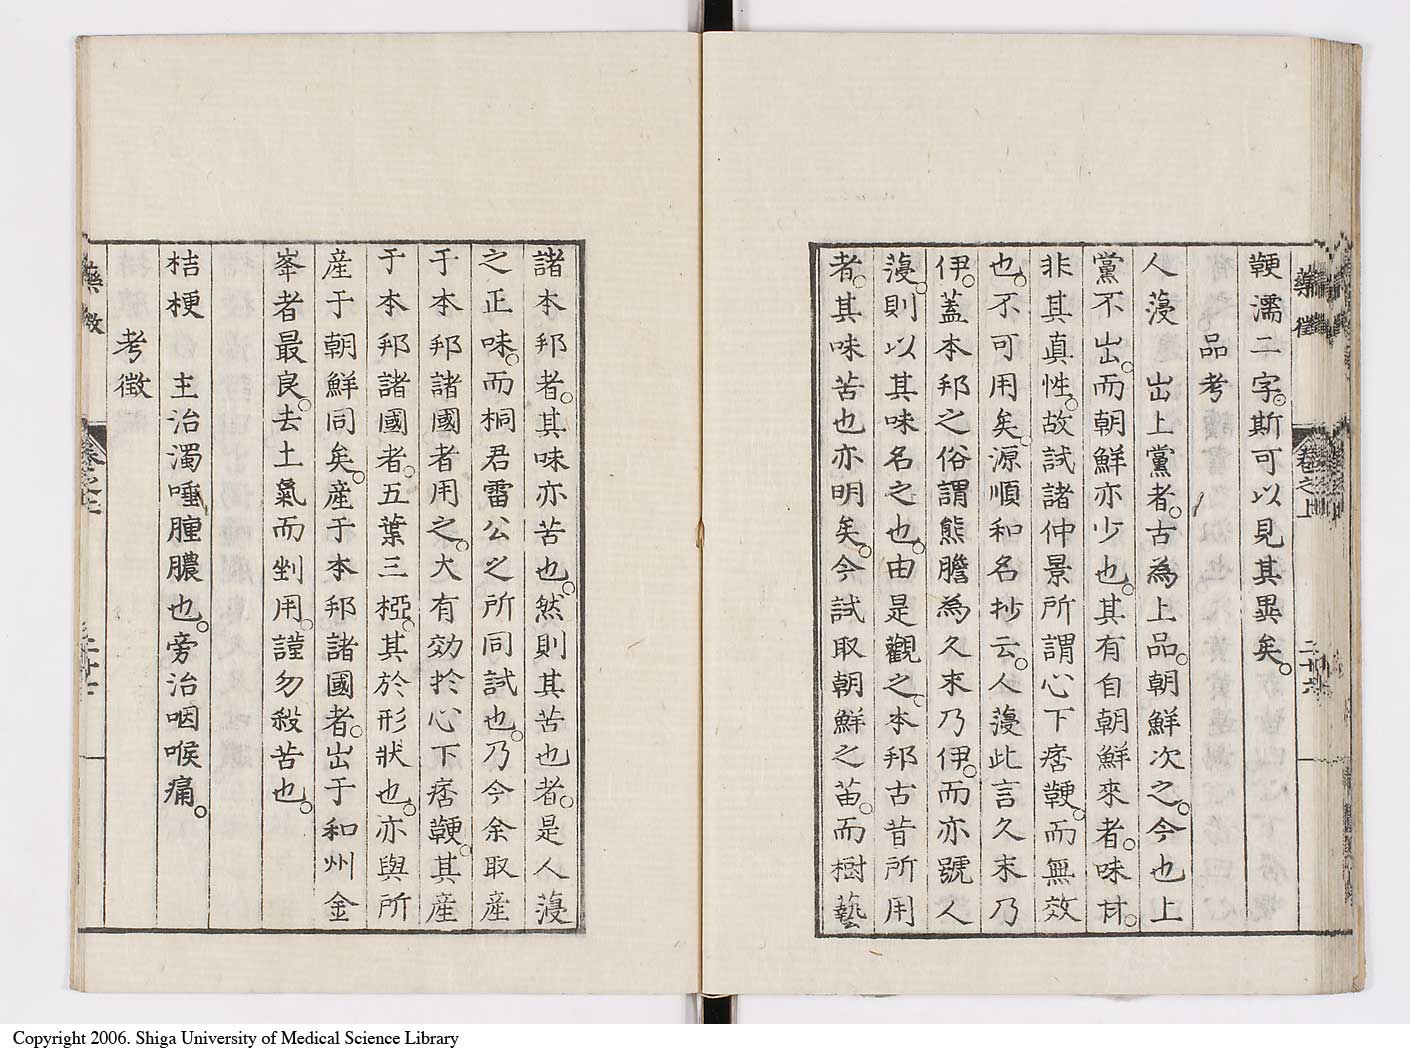 藥徵
卷之上
二十六
鞕濡二字。斯可以見其異矣。
品考
人蓡 出上黨者。古為上品。朝鮮次之。今也上
黨不出。而朝鮮亦少也。其有自朝鮮來者。味甘。
非其真性。故試諸仲景所謂心下痞鞕。而無效
也。不可用矣。源順和名抄云。人蓡此言久末乃
伊。蓋本邦之俗謂熊膽為久末乃伊。而亦號人
蓡。則以其味名之也。由是觀之、本邦古昔所用
者。其味苦也亦明矣。今試取朝鮮之苗。而樹藝
諸本邦者。其味亦苦也。然則其苦也者。是人蓡
之正味。而桐君雷公之所同試也。乃今余取產
于本邦諸國者用之。大有効於心下痞鞕。其產
于本邦諸國者。五葉三椏。其於形狀也。亦與所
產于朝鮮同矣。產于本邦諸國者。出于和州金
峯者最良。去土氣而剉用。謹勿殺苦也。
桔梗 主治濁唾腫膿也。旁治咽喉痛。
考徵
藥徵